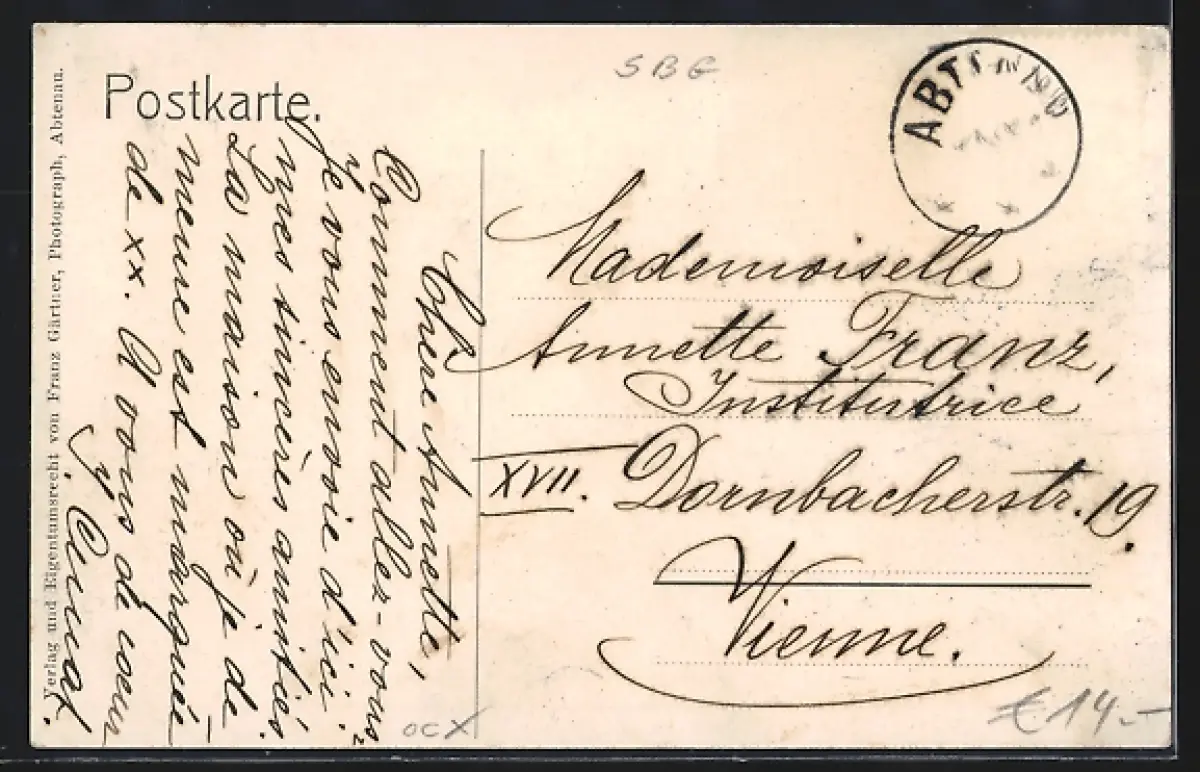 Postkarte.
SBG
ABTENAU
Verlag und Eigentumsrecht von Franz Gärtner, Photograph, Abtenau.
Chère Annette,
Comment allez-vous?
Je vous envoie d'ici
mes sincères amitiés.
La maison où je de-
meure est marquée
de xx. A vous de cœur
Mademoiselle
Annette Franz,
Institutrice
XVII. Dornbacherstr. 19.
Vienne.
OCX
€ 14.-